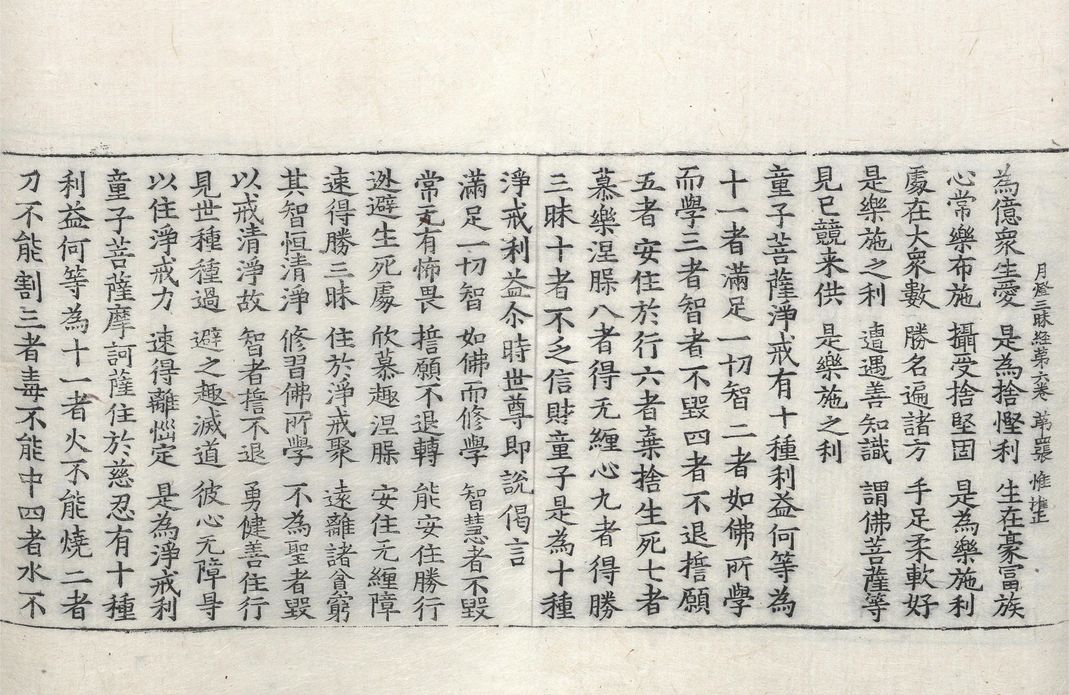 為億衆生愛 是為捨慳利 生在豪冨族
月燈三昧經第六卷 苐 張 惟
心常樂布施 攝受捨堅固 是為樂施利
處在大衆數 勝名遍諸方 手足柔軟好
是樂施之利 遭遇善知識 謂佛菩薩等
見已競来供 是樂施之利
童子菩薩淨戒有十種利益何等為
十一者滿足一切智二者如佛所學
而學三者智者不毀四者不退擔願
五者安住於行六者棄捨生死七者
慕樂涅槃八者得无纏心九者得勝
三昧十者不乏信財童子是為十種
淨戒利益尒時世尊即説偈言
滿足一切智 如佛而修學 智慧者不毀
常无有怖畏 擔願不退轉 能安住勝行
迯避生死處 欣慕趣涅槃 安住无纏障
速得勝三昧 住於淨戒聚 遠離諸貪窮
其智恒清淨 修習佛所學 不為聖者毀
以戒清淨故 智者擔不退 勇健善住行
見世種種過 避之趣滅道 彼心无障㝵
以住淨戒力 速得離惱定 是為淨戒利
童子菩薩摩訶薩住於慈忍有十種
利益何等為十一者火不能燒二者
刀不能割三者毒不能中四者水不